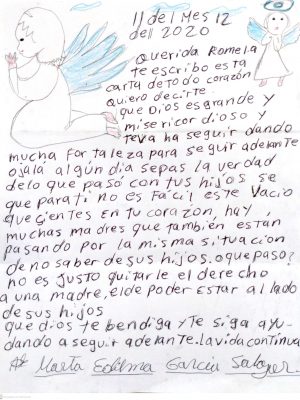 11 del Mes 12
dell 2020
Querida Romela
te escribo esta
carta de todo corazón
quiero decirte
que Dios es grande y
misericordioso y
teva ha seguir dando
mucha fortaleza para seguir adelante
ojala algún día sepas la verdad
delo que pasó con tus hijos se
que para ti no es Fácil este Vacio
que cientes en tu corazón, hay
muchas madres que también están
pasando por la misma situacion
de no saber de sus hijos. o que paso?
no es justo quitarle el derecho
a una madre, el de poder estar al lado
de sus hijos
que dios te bendiga y te siga ayu-
dando a seguir adelante. la vida continua
Marta Edilma Garcia